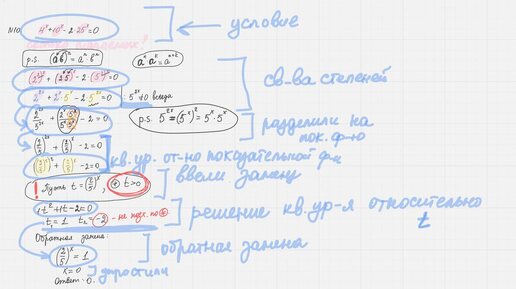 N10 4ˣ+10ˣ-2·25ˣ=0 условие
p.s. (ab)ˣ=aˣ·bˣ aⁿaᵏ=aⁿ⁺ᵏ
(2²)ˣ+(2·5)ˣ-2·(5²)ˣ=0 св-ва степеней
2²ˣ+2ˣ·5ˣ-2·5²ˣ=0 :5²ˣ≠0 всегда
2²ˣ/5²ˣ + 2ˣ·5ˣ/5ˣ·5ˣ -2=0 p.s. 5²ˣ=(5ˣ)²=5ˣ·5ˣ разделили на пок. ф-ю
(2/5)²ˣ+(2/5)ˣ-2=0
((2/5)ˣ)²+(2/5)ˣ-2=0 кв. ур. от-но показательной ф-и
! Пусть t=(2/5)ˣ, * t>0 ввели замену
1t²+1t-2=0
t₁=1 t₂=-2 - не подх. по * решение кв. ур-я относительно t
Обратная замена:
(2/5)ˣ=1 обратная замена
x=0 упростили
Ответ: 0.